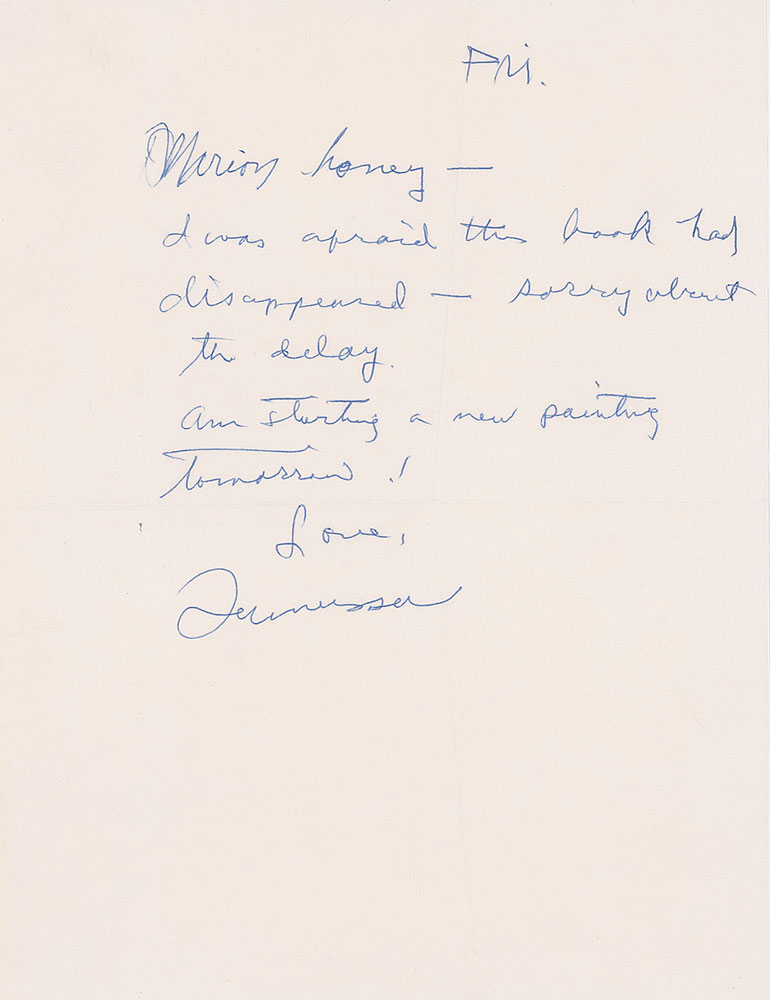 Fri.
Marion honey —
I was afraid this book had
disappeared — sorry about
the delay.
Am starting a new painting
tomorrow!
Love,